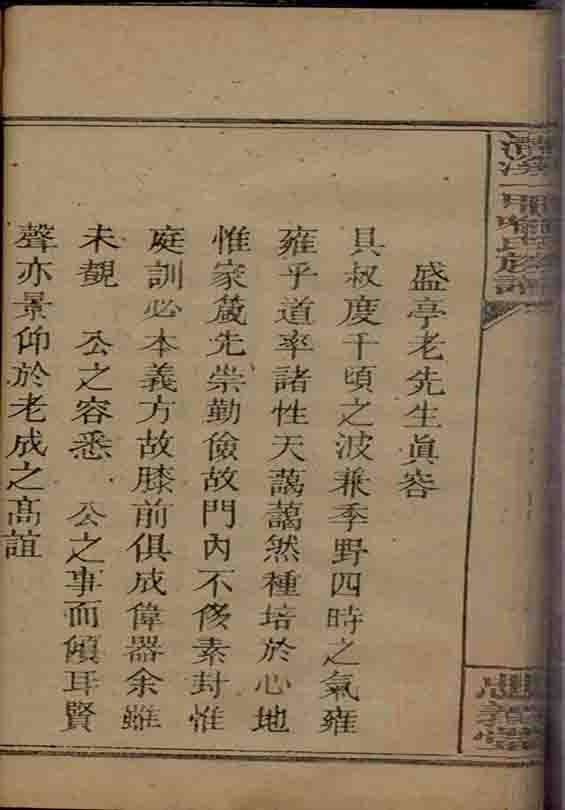 盛亭老先生眞容
具叔度千頃之波兼季野四時之氣雍
雍乎道率諸性天藹藹然種培於心地
惟家箴先崇勤儉故門內不侈素封惟
庭訓必本義方故膝前俱成偉器余雖
未覩 公之容悉 公之事而傾耳賢
聲亦景仰於老成之高誼